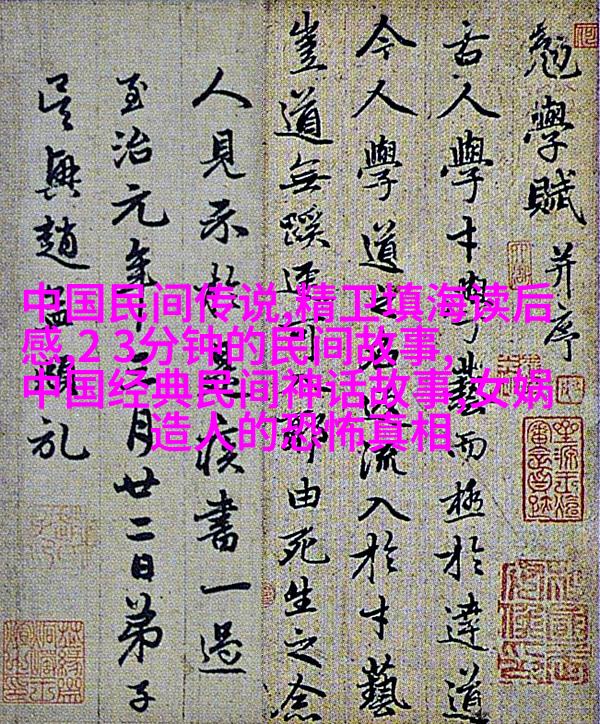 中国民间传说,精卫填海读后
感,2 3分钟的民间故事,
中国经典民间神话故事,女娲
造人的恐怖真相
勉學賦并序
古人學才藝而極於達道
今人學道之流入於才藝
豈道無蹊由死生之念
人見示書一過
至治元年十二月廿二日弟子
吳興趙孟頫